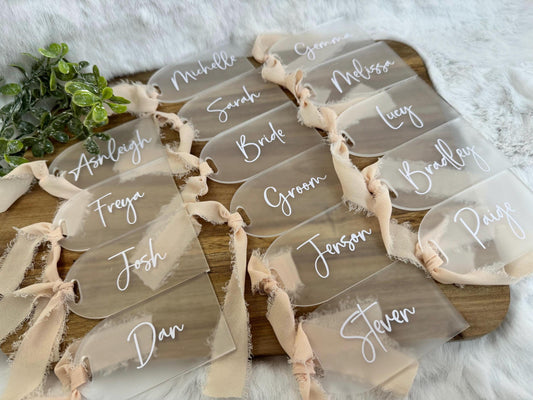 Michelle
Sarah
Bride
Groom
Jenson
Steven
Gemma
Melissa
Lucy
Bradley
Paige
Ashleigh
Freya
Josh
Dan